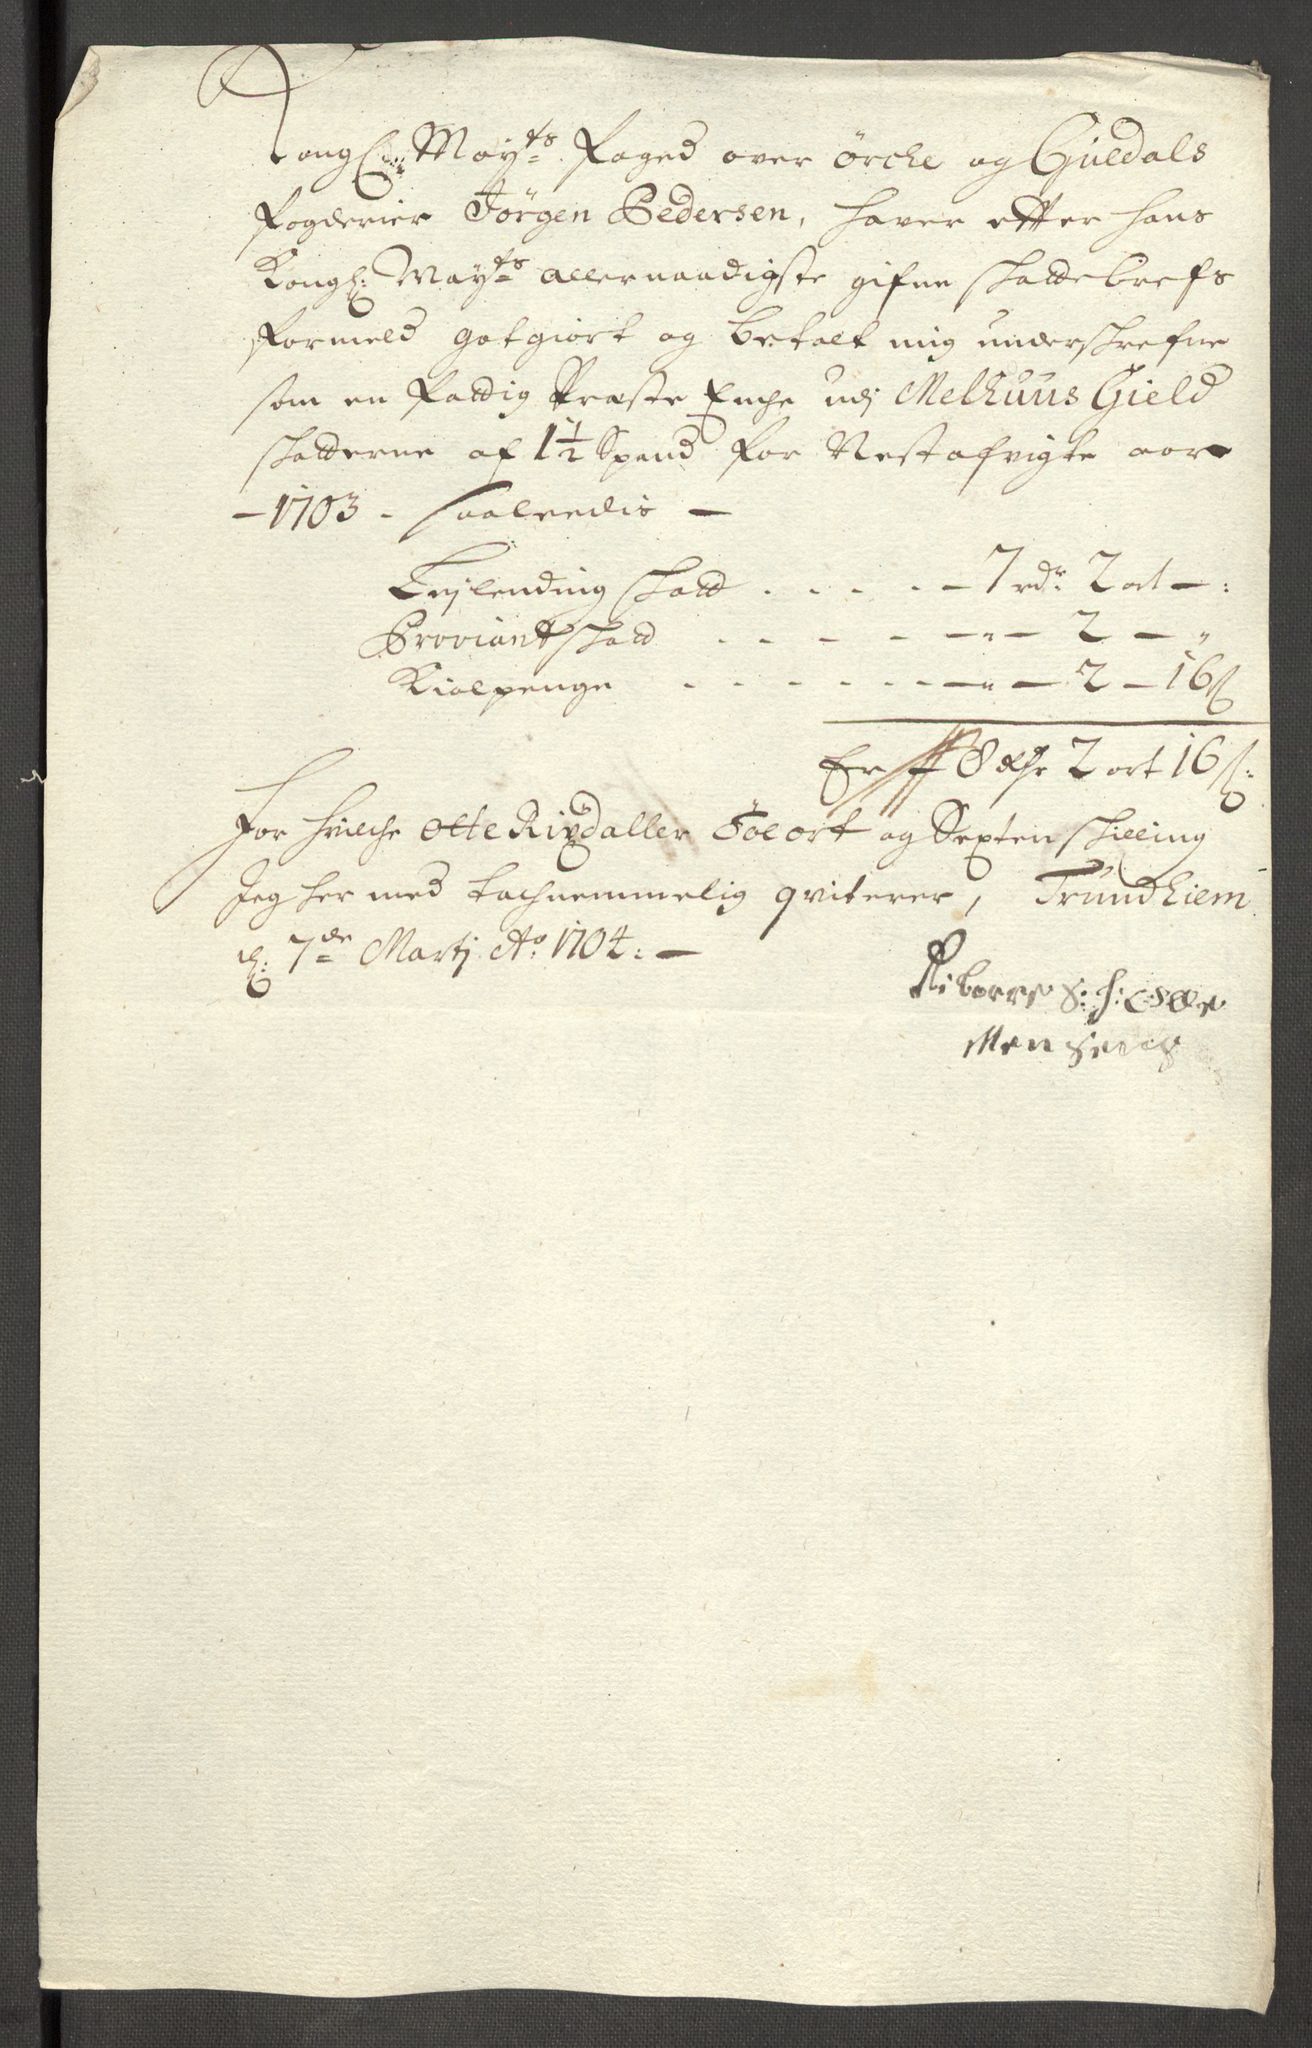 Kongl: Mayts. Foged over Örche og Guldals
fogderier Jörgen Pedersen, haver effter hans
Kongl: Mayts allernaadigste gifne skattebrefs
formeld gotgiort og betalt mig underskrefne
som en fattig Præste Enche udj Melhuus Gield
skatterne af 1½ Spand for Nestafvigte aar
– 1703 - saaledis –
Leylending skatt . . . . – 7 rdr: 2 ort – :
Proviant skatt . . . . – „ – 2 – „
Kiolpenge . . . . . . – „ – 2 – 16 s
Er 8 Rdr 2 ort 16 s:
for hvilche Otte Rixdaller Toe ort og Sexten skilling
Jeg her med tachnemmelig qviterer, Trundhiem
d: 7de Martj Ao: 1704: –